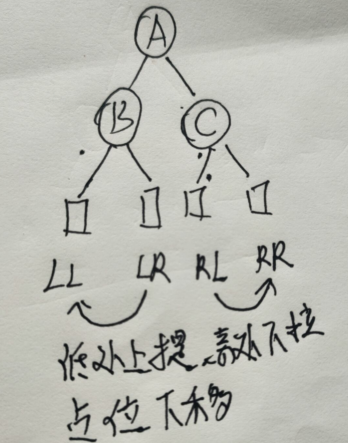 A
B C
LL LR RL RR
低处上提、高处下拉
占位下移